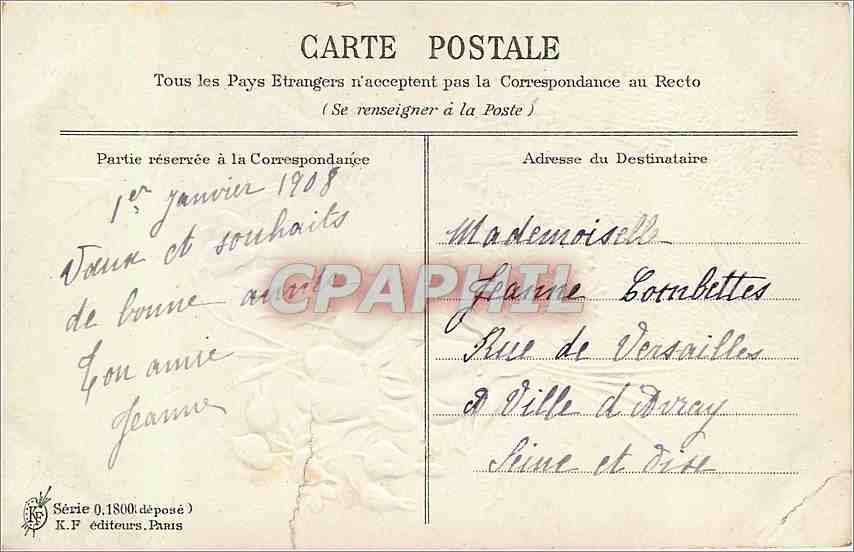 CARTE POSTALE
Tous les Pays Etrangers n'acceptent pas la Correspondance au Recto
(Se renseigner à la Poste)
Partie réservée à la Correspondance
1er Janvier 1908
Vœux et souhaits
de bonne année
Ton amie
Jeanne
Adresse du Destinataire
Mademoiselle
Jeanne Combettes
Rue de Versailles
A Ville d'Avray
Seine et Oise
CPAPHIL
KF
Série 0.1800 (déposé)
K.F éditeurs, PARIS